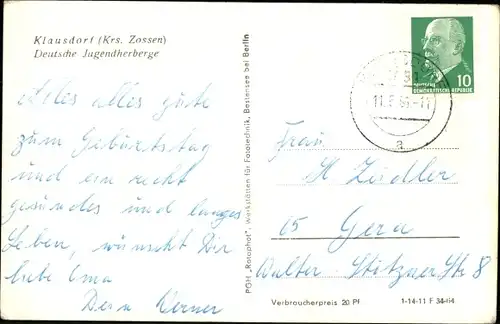 Klausdorf (Krs. Zossen)
Deutsche Jugendherberge
Alles alles gute
zum Geburtstag
und ein recht
gesundes und langes
Leben, wünscht Dir
liebe Oma
Dein Werner
PGH „Rotophot", Werkstätten für Fototechnik, Bestensee bei Berlin
10
DEUTSCHE DEMOKRATISCHE REPUBLIK
a
Frau
H Zeidler
65 Gera
Walter Stötzner Str 8
Verbraucherpreis 20 Pf
1-14-11 F 34